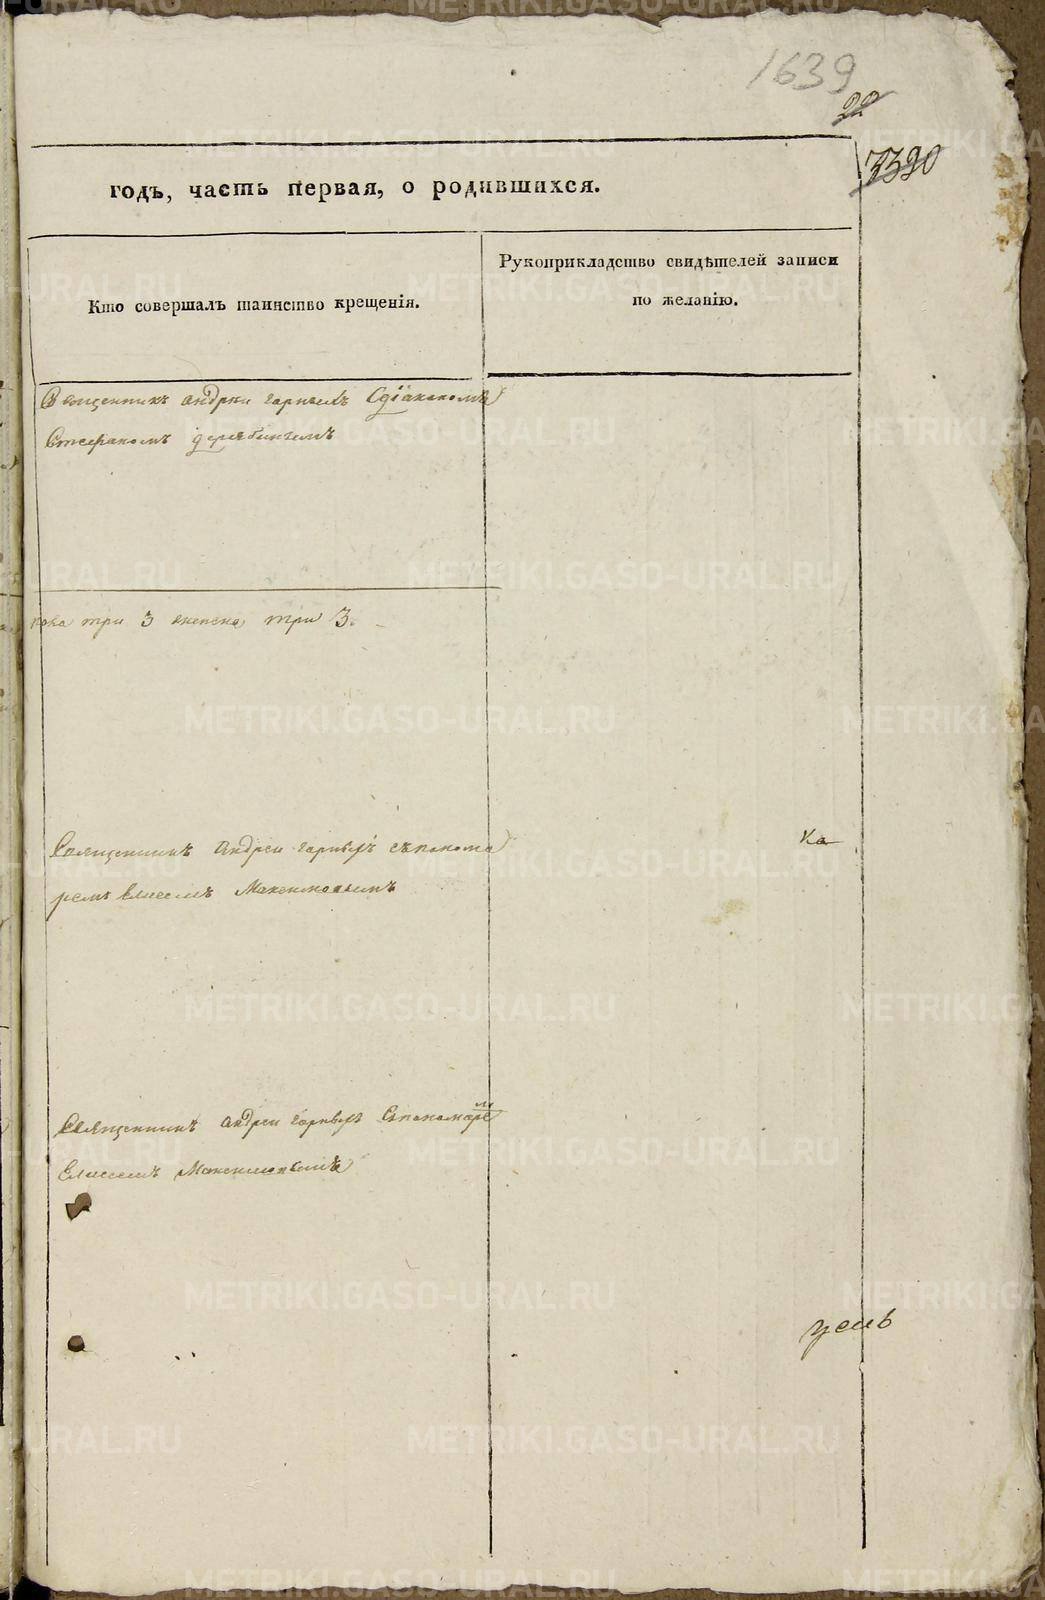 1639
22
годъ, часть первая, о родившихся.
Кто совершалъ таинство крещенія.
Рукоприкладство свидѣтелей записи
по желанію.
Священникъ андреи Сдіакономъ
Стефаномъ дерябинымъ
три 3 женска три 3.
Священникъ андреи спонома
ремъ Елисеемъ Максимовымъ
ка
Священникъ андреи Спономаре
мъ
Елисеемъ Максимовымъ
METRIKI.GASO-URAL.RU